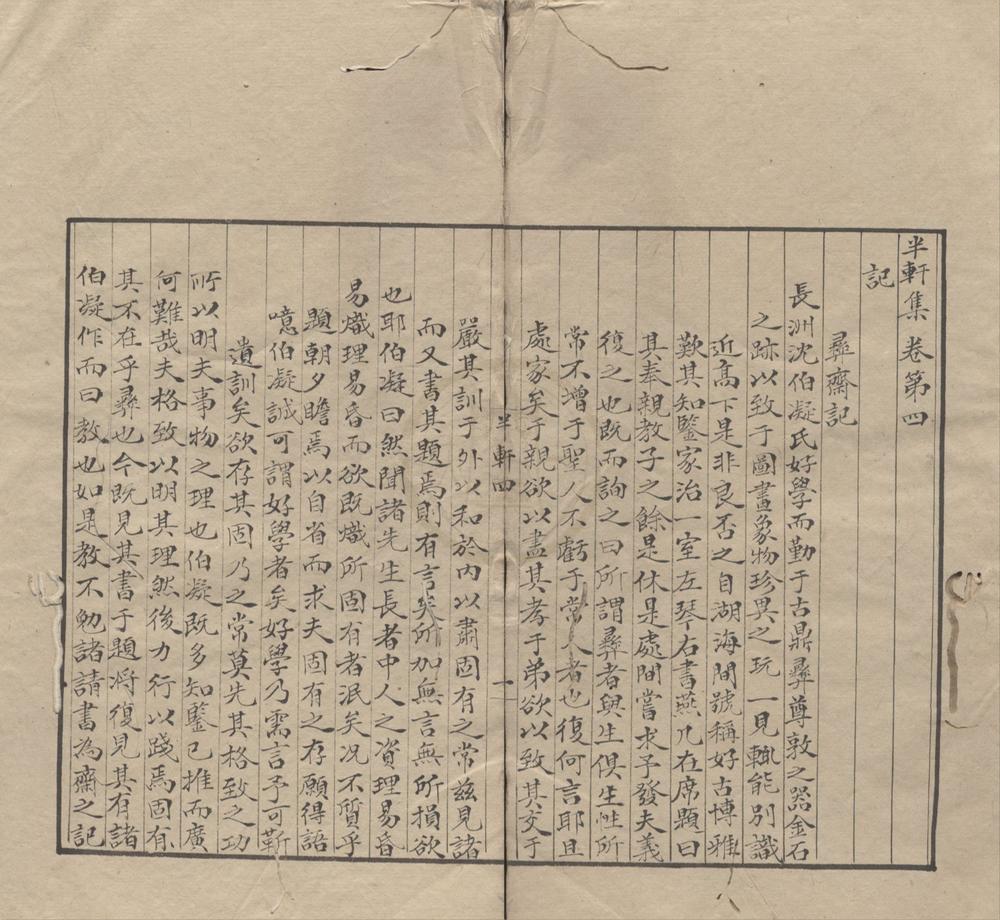 半軒集卷第四
記
彞齋記
長洲沈伯凝氏好學而勤于古鼎彞尊敦之器金石
之跡以致于圖畫象物珍異之玩一見輒能別識
近髙下是非良否之自湖海間號稱好古博雅
歎其知鑒家治一室左琴右書燕几在席題曰
其奉親教子之餘是休是處間嘗求予發夫義
復之也既而詢之曰所謂彞者與生俱生性所
常不增于聖人不虧于常人者也復何言耶且
處家矣于親欲以盡其孝于弟欲以致其交于
半軒四
一
嚴其訓于外以和於內以肅固有之常茲見諸
而又書其題焉則有言矣所加無言無所損欲
也耶伯凝曰然聞諸先生長者中人之資理易昏
易熾理易昏而欲既熾所固有者泯矣况不質乎
題朝夕瞻焉以自省而求夫固有之存願得語
噫伯凝誠可謂好學者矣好學乃需言予可靳
遺訓矣欲存其固乃之常莫先其格致之功
所以明夫事物之理也伯凝既多知鑒已推而廣
何難哉夫格致以明其理然後力行以踐焉固有
其不在乎彞也今既見其書于題將復見其有諸
伯凝作而曰教也如是教不勉諸請書為齋之記